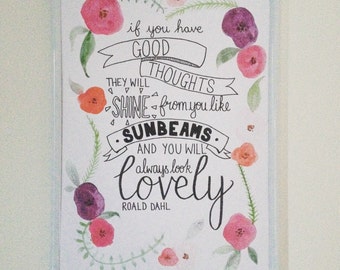 if you have
GOOD
THOUGHTS
THEY WILL
SHINE from you like
SUNBEAMS
AND YOU WILL
always look
lovely
ROALD DAHL